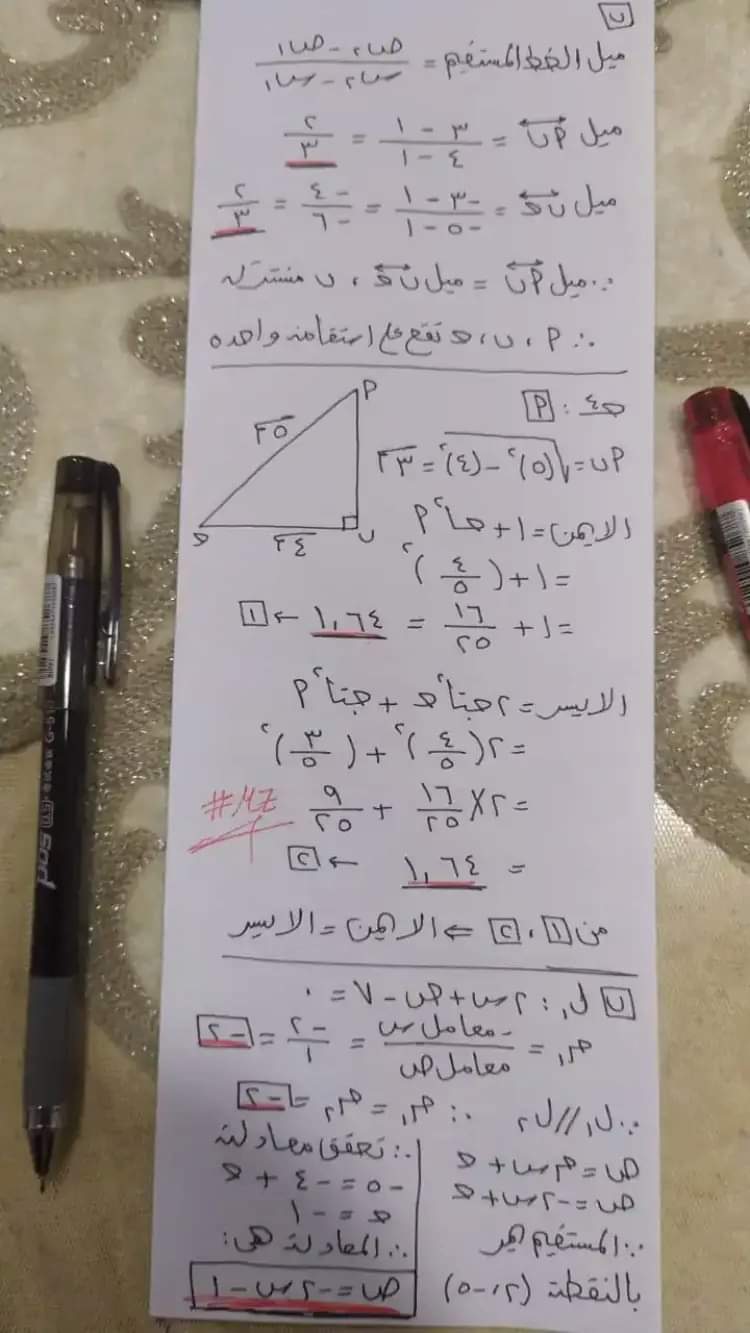 ب
ميل الخط المستقيم = (ص٢ - ص١)/(س٢ - س١)
ميل أب = (٣ - ١)/(٤ - ١) = ٢/٣
ميل بج = (-٣ - ١)/(-٥ - ١) = -٤/-٦ = ٢/٣
∵ ميل أب = ميل بج ، ب مشتركة
∴ أ ، ب ، ج تقع على استقامة واحده
ج٤ : أ
أب = √(٥)² - (٤)² = ٣سم
أ
٥سم
ب
٤سم
ج
الايمن = ١ + جا²أ
= ١ + (٤/٥)²
= ١ + ١٦/٢٥ = ١,٦٤ ← ١
الايسر = ٢جتا²ج + جتا²أ
= ٢(٤/٥)² + (٣/٥)²
= ٢ × ١٦/٢٥ + ٩/٢٥
#MZ
= ١,٦٤ ← ٢
من ١ ، ٢ ⇐ الايمن = الايسر
ب ل١ : ٢س + ص - ٧ = ٠
م١ = -معامل س/معامل ص = -٢/١ = -٢
∵ ل١ // ل٢ ∴ م١ = م٢ = -٢
ص = م س + ج
ص = -٢س + ج
∵ المستقيم يمر
بالنقطة (٢، -٥)
∴ تحقق معادلته
-٥ = -٤ + ج
ج = -١
∴ المعادلة هى:
ص = -٢س - ١